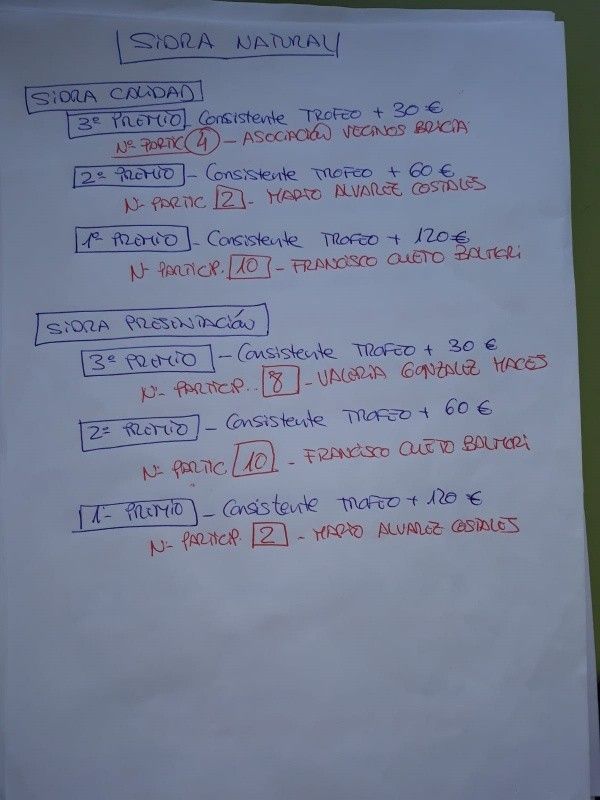 SIDRA NATURAL
SIDRA CALIDAD
3º PREMIO - Consistente TROFEO + 30 €
Nº PARTIC 4 - ASOCIACIÓN VECINOS BRICIA
2º PREMIO - Consistente TROFEO + 60 €
Nº PARTIC 2 - MARIO ALVAREZ COSTALES
1º PREMIO - Consistente TROFEO + 120 €
Nº PARTICIP. 10 - FRANCISCO CUETO
SIDRA PRESENTACIÓN
3º PREMIO - Consistente TROFEO + 30 €
Nº PARTICIP.. 8 - VALERIA GONZALEZ HACES
2º PREMIO - Consistente TROFEO + 60 €
Nº PARTIC 10 - FRANCISCO CUETO
1º PREMIO - Consistente TROFEO + 120 €
Nº PARTICIP. 2 - MARIO ALVAREZ COSTALES